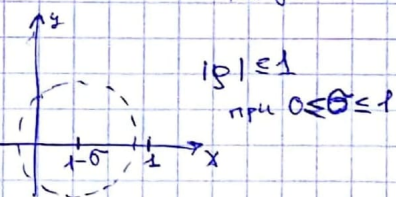 y
|g| ≤ 1
при 0≤σ≤1
1-σ 1 x